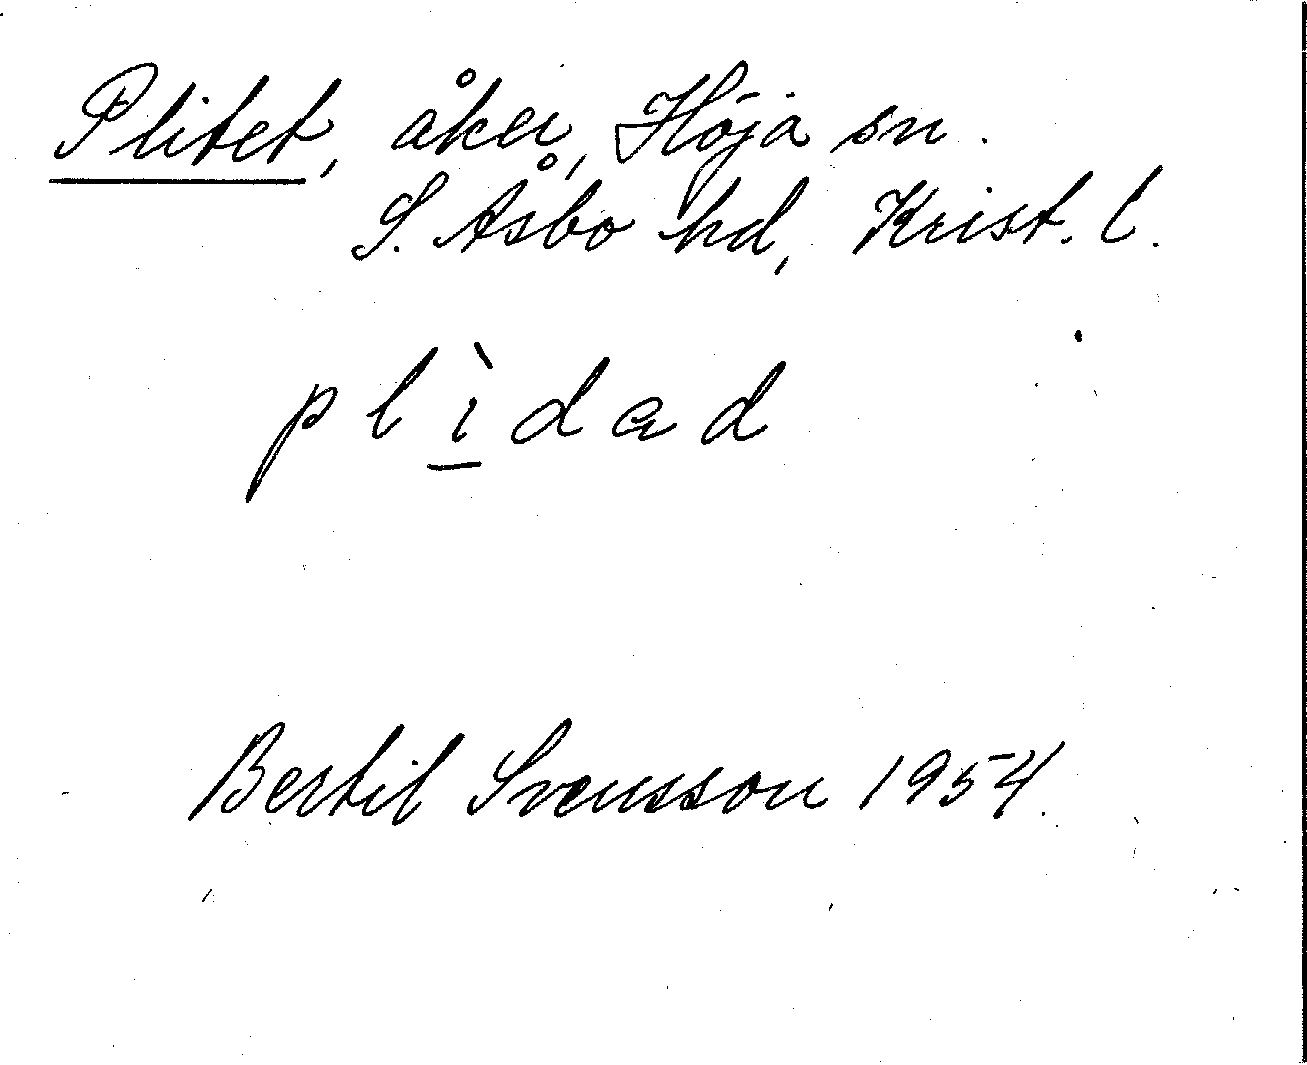 Plitet, åker, Höja sn.
S. Åsbo hd, Krist. l.
plìdad
Bertil Svensson 1954.